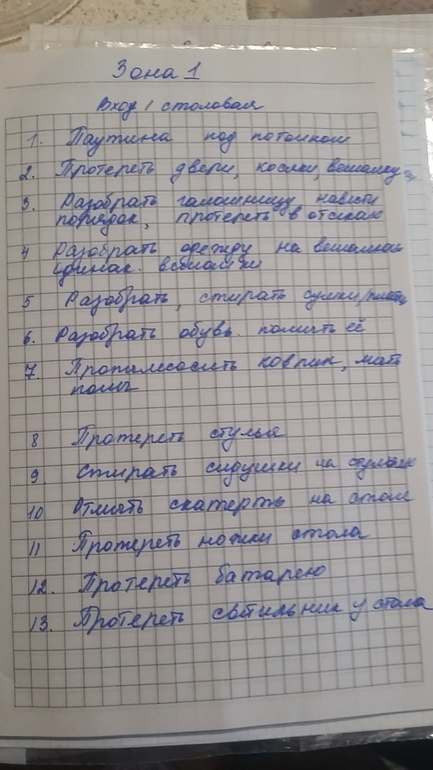 Зона 1
Вход / столовая
1. Паутина под потолком
2. Протереть двери, косяки, вешалку
3. Разобрать галошницу, навести
порядок, протереть в отсеках
4 Разобрать одежду на вешалках
одинак. вешалки
5 Разобрать, стирать сумки/
6. Разобрать обувь. помыть её
7. Пропылесосить коврик, мыть
полы
8 Протереть стулья
9 Стирать сидушки на стульях
10 Отмыть скатерть на столе
11 Протереть ножки стола
12. Протереть батарею
13. Протереть светильник у стола